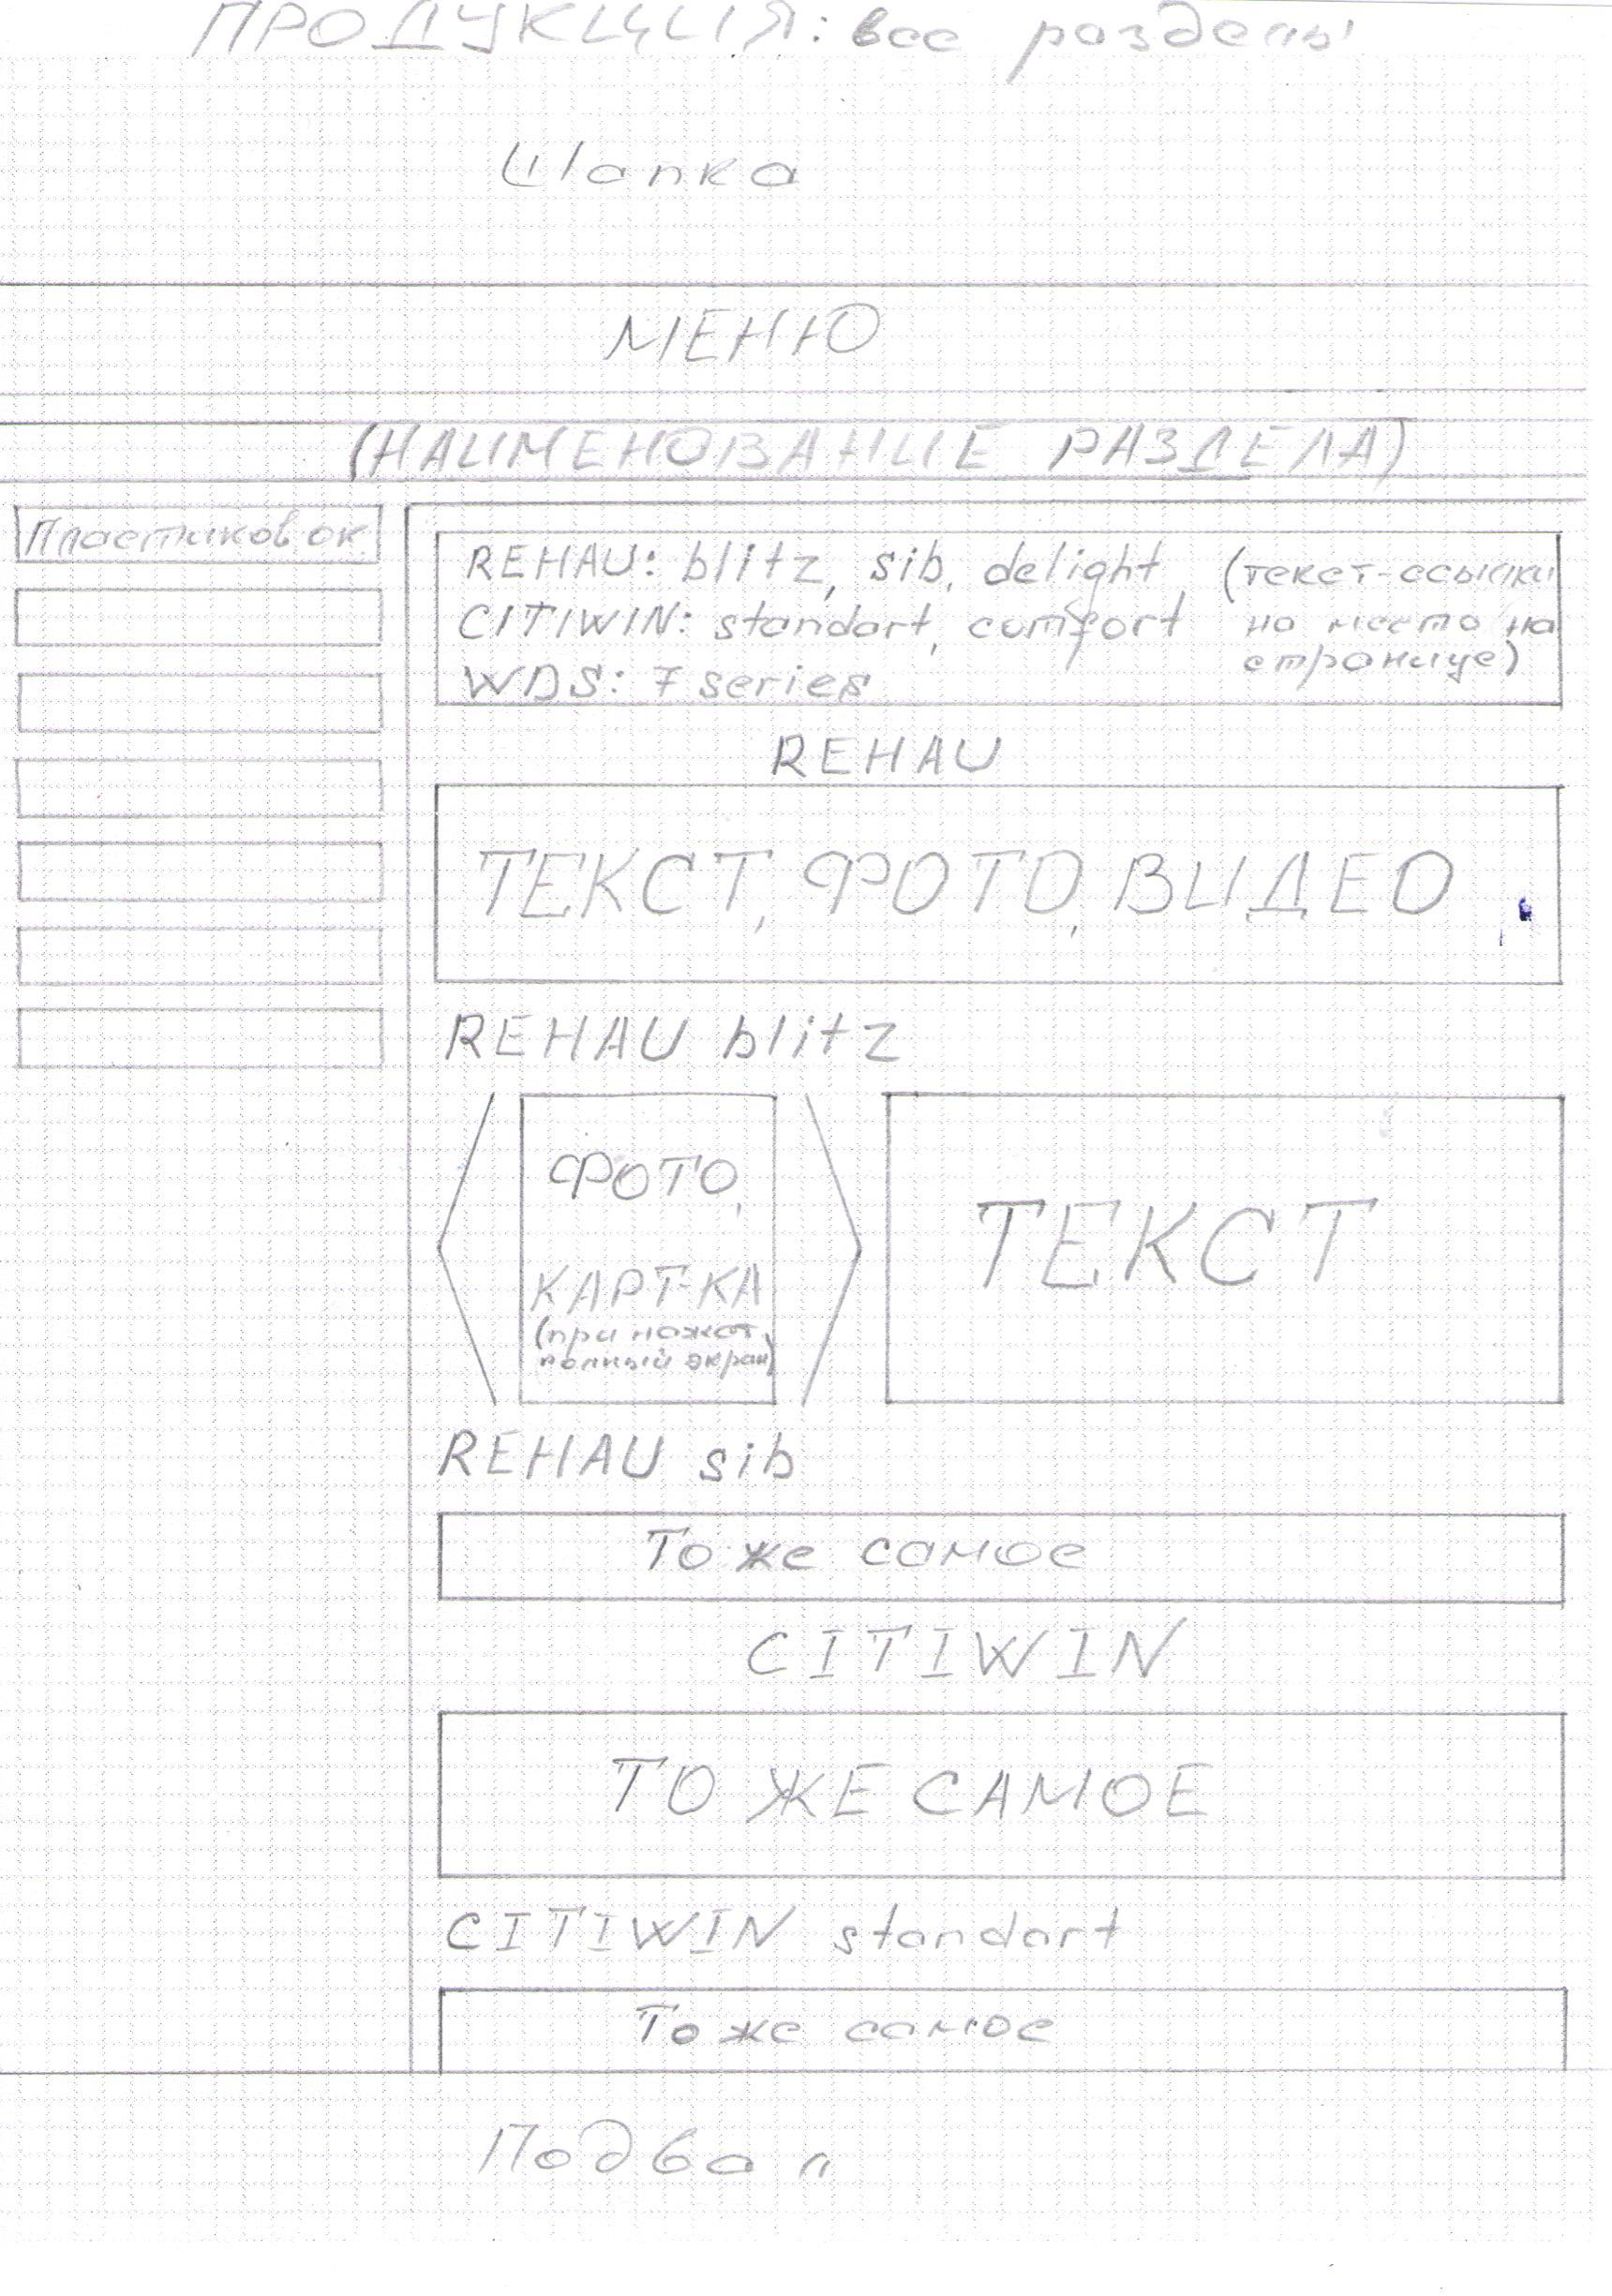 ПРОДУКЦИЯ: все разделы
Шапка
МЕНЮ
(НАИМЕНОВАНИЕ РАЗДЕЛА)
Пластиков ок.
REHAU: blitz, sib, delight (текст-ссылки
CITIWIN: standart, comfort на место на
странице)
WDS: 7 series
REHAU
ТЕКСТ, ФОТО, ВИДЕО
REHAU blitz
ФОТО,
КАРТ-КА
(при нажат.
полный экран)
ТЕКСТ
REHAU sib
То же самое
CITIWIN
ТО ЖЕ САМОЕ
CITIWIN standart
То же самое
Подвал